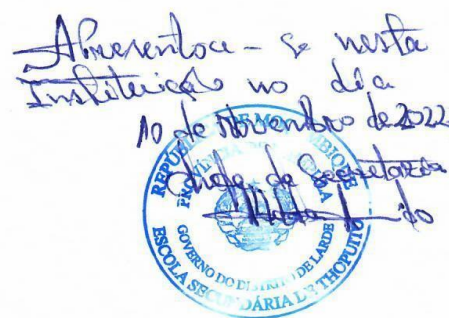 Apresentou-se nesta
Instituição no dia
10 de Novembro de 2022
Chefe da Secretaria
REPÚBLICA DE MOÇAMBIQUE
PROVÍNCIA DE NAMPULA
GOVERNO DO DISTRITO DE LARDE
ESCOLA SECUNDÁRIA DE THOPUITO